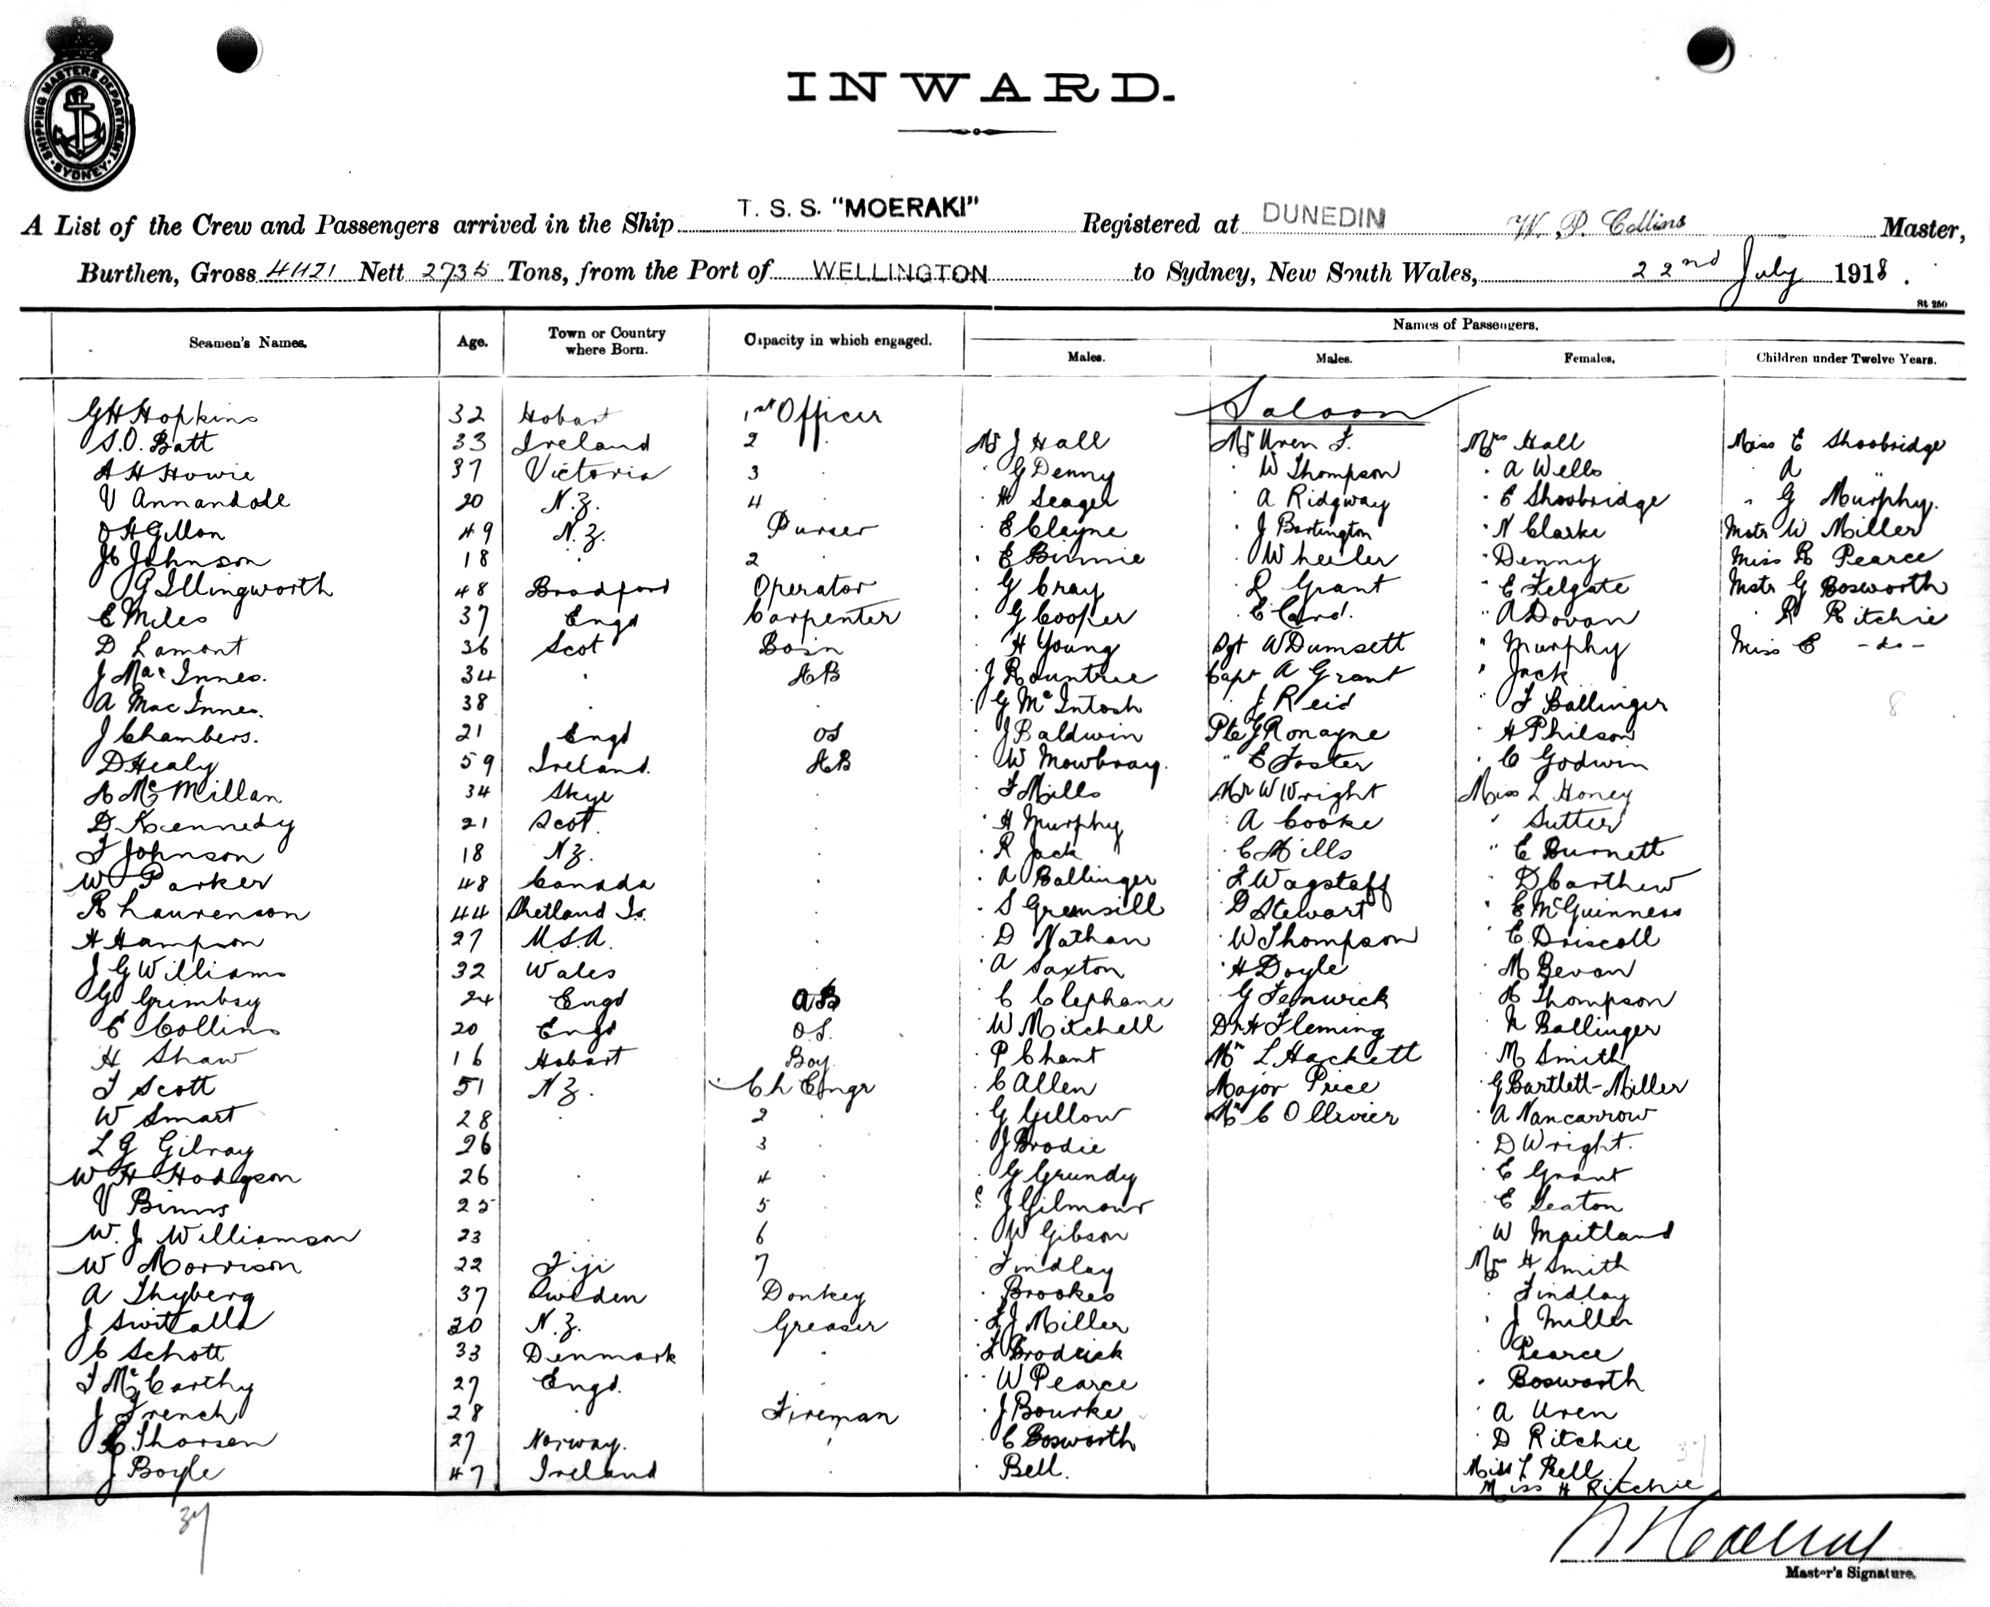 SHIPPING MASTERS DEPARTMENT
SYDNEY
INWARD.
A List of the Crew and Passengers arrived in the Ship T. S. S. "MOERAKI" Registered at DUNEDIN W. P. Collins Master,
Burthen, Gross 4421 Nett 2735 Tons, from the Port of WELLINGTON to Sydney, New South Wales, 22nd July 1918.
St 250
Seamen's Names. Age. Town or Country where Born. Capacity in which engaged. Names of Passengers.
Males. Males. Females. Children under Twelve Years.
G H Hopkins 32 Hobart 1st Officer Saloon
S. O. Batt 33 Ireland 2 " Mr J Hall Mr Uren F. Mrs Hall Miss E Shoobridge
A H Howie 37 Victoria 3 " G Denny " W Thompson " A Wells " A "
V Annandale 20 N.Z. 4 " H Seager " A Ridgway " E Shoobridge " G Murphy.
O H Gillon 49 N.Z. Purser " E Clayne " J Bartington " N Clarke Mstr W Miller
J C Johnson 18 " 2 " E Binnie " Wheeler " Denny Miss R Pearce
G Illingworth 48 Bradford Operator " G Cray " L Grant " E Felgate Mstr G Bosworth
E Miles 37 Engd Carpenter " G Cooper " E Card. " A Dovan " R Ritchie
D Lamont 36 Scot Bosn " H Young Sgt W Dumsett " Murphy Miss C -do-
J MacInnes. 34 " AB " J Rountree Capt A Grant " Jack
A MacInnes. 38 " " G McIntosh " J Reid " F Ballinger 8
J Chambers. 21 Engd OS " J Baldwin Pte J Ronayne " H Philson
D Healy 59 Ireland. AB " W Mowbray. " E Foster " C Godwin
A McMillan 34 Skye " F Mills Mr W Wright Miss L Honey
D Kennedy 21 Scot. " H Murphy " A Cooke " Sutter
F Johnson 18 N.Z. " R Jack " C Mills " E Burnett
W Parker 48 Canada " A Ballinger " F Wagstaff " D Carthew
R Laurenson 44 Shetland Is. " S Gremsill " D Stewart " E McGuinness
H Hampson 27 U.S.A. " D Nathan " W Thompson " E Driscoll
J G Williams 32 Wales " A Saxton " H Doyle " M Bevan
G Grimbsy 24 Engd AB " C Clephane " G Fenwick " H Thompson
C Collins 20 Engd O.S. " W Mitchell Dr H Fleming " N Ballinger
H Shaw 16 Hobart Boy " P Chant Mr L Hackett " M Smith
F Scott 51 N.Z. Ch Engr " C Allen Major Price " G Bartlett-Miller
W Smart 28 " 2 " G Gillow Mr C Ollivier " A Nancarrow
L G Gilray 26 3 " J Brodie " D Wright.
W H Hodgson 26 " 4 " G Grundy " E Grant
V Binns 25 " 5 " J Gilmour " E Seaton
W. J. Williamson 23 " 6 " W Gibson " W Maitland
W Morrison 22 Fiji 7 " Findlay Mrs H Smith
A Thyberg 37 Sweden Donkey " Brookes " Findlay
J Switalla 30 N.Z. Greaser " F J Miller " J Miller
C Schott 33 Denmark " " F Brodrick " Pearce
F McCarthy 27 Engd. " " W Pearce " Bosworth
J French 28 " Fireman " J Bourke " A Uren
C Thorsen 27 Norway. " " C Bosworth " D Ritchie 37
J Boyle 47 Ireland " " Bell. Miss L Bell
Miss H Ritchie
37
Master's Signature.